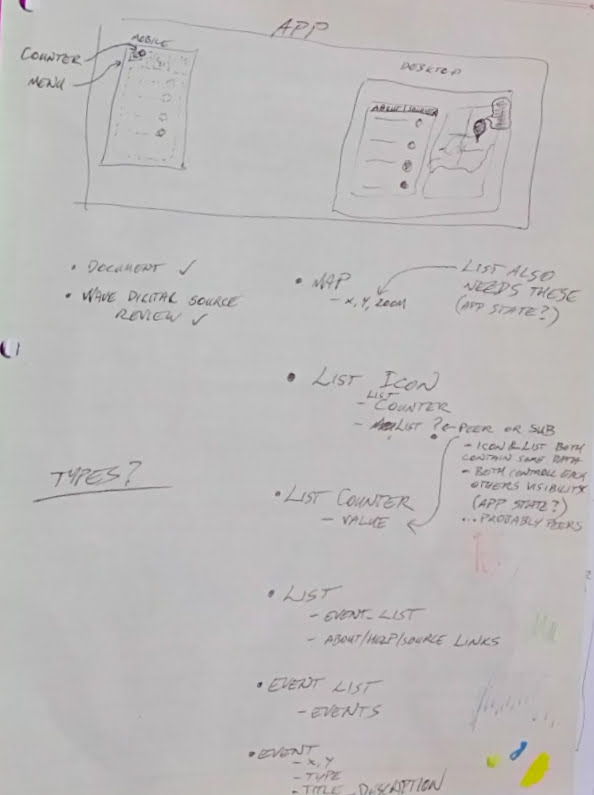 APP
MOBILE
COUNTER
MENU
DESKTOP
ABOUT/SOURCE
• DOCUMENT ✓
• WAVE DIGITAL SOURCE
REVIEW ✓
• MAP
- X, Y, ZOOM
LIST ALSO
NEEDS THESE
(APP STATE?)
• LIST ICON
LIST
- COUNTER
- LIST ?
PEER OR SUB
- ICON & LIST BOTH
CONTAIN SAME DATA
- BOTH CONTROLL EACH
OTHERS VISIBILITY
(APP STATE?)
... PROBABLY PEERS
TYPES?
• LIST COUNTER
- VALUE
• LIST
- EVENT_LIST
- ABOUT/HELP/SOURCE LINKS
• EVENT LIST
- EVENTS
• EVENT
- X, Y
- TYPE
- TITLE_DESCRIPTION